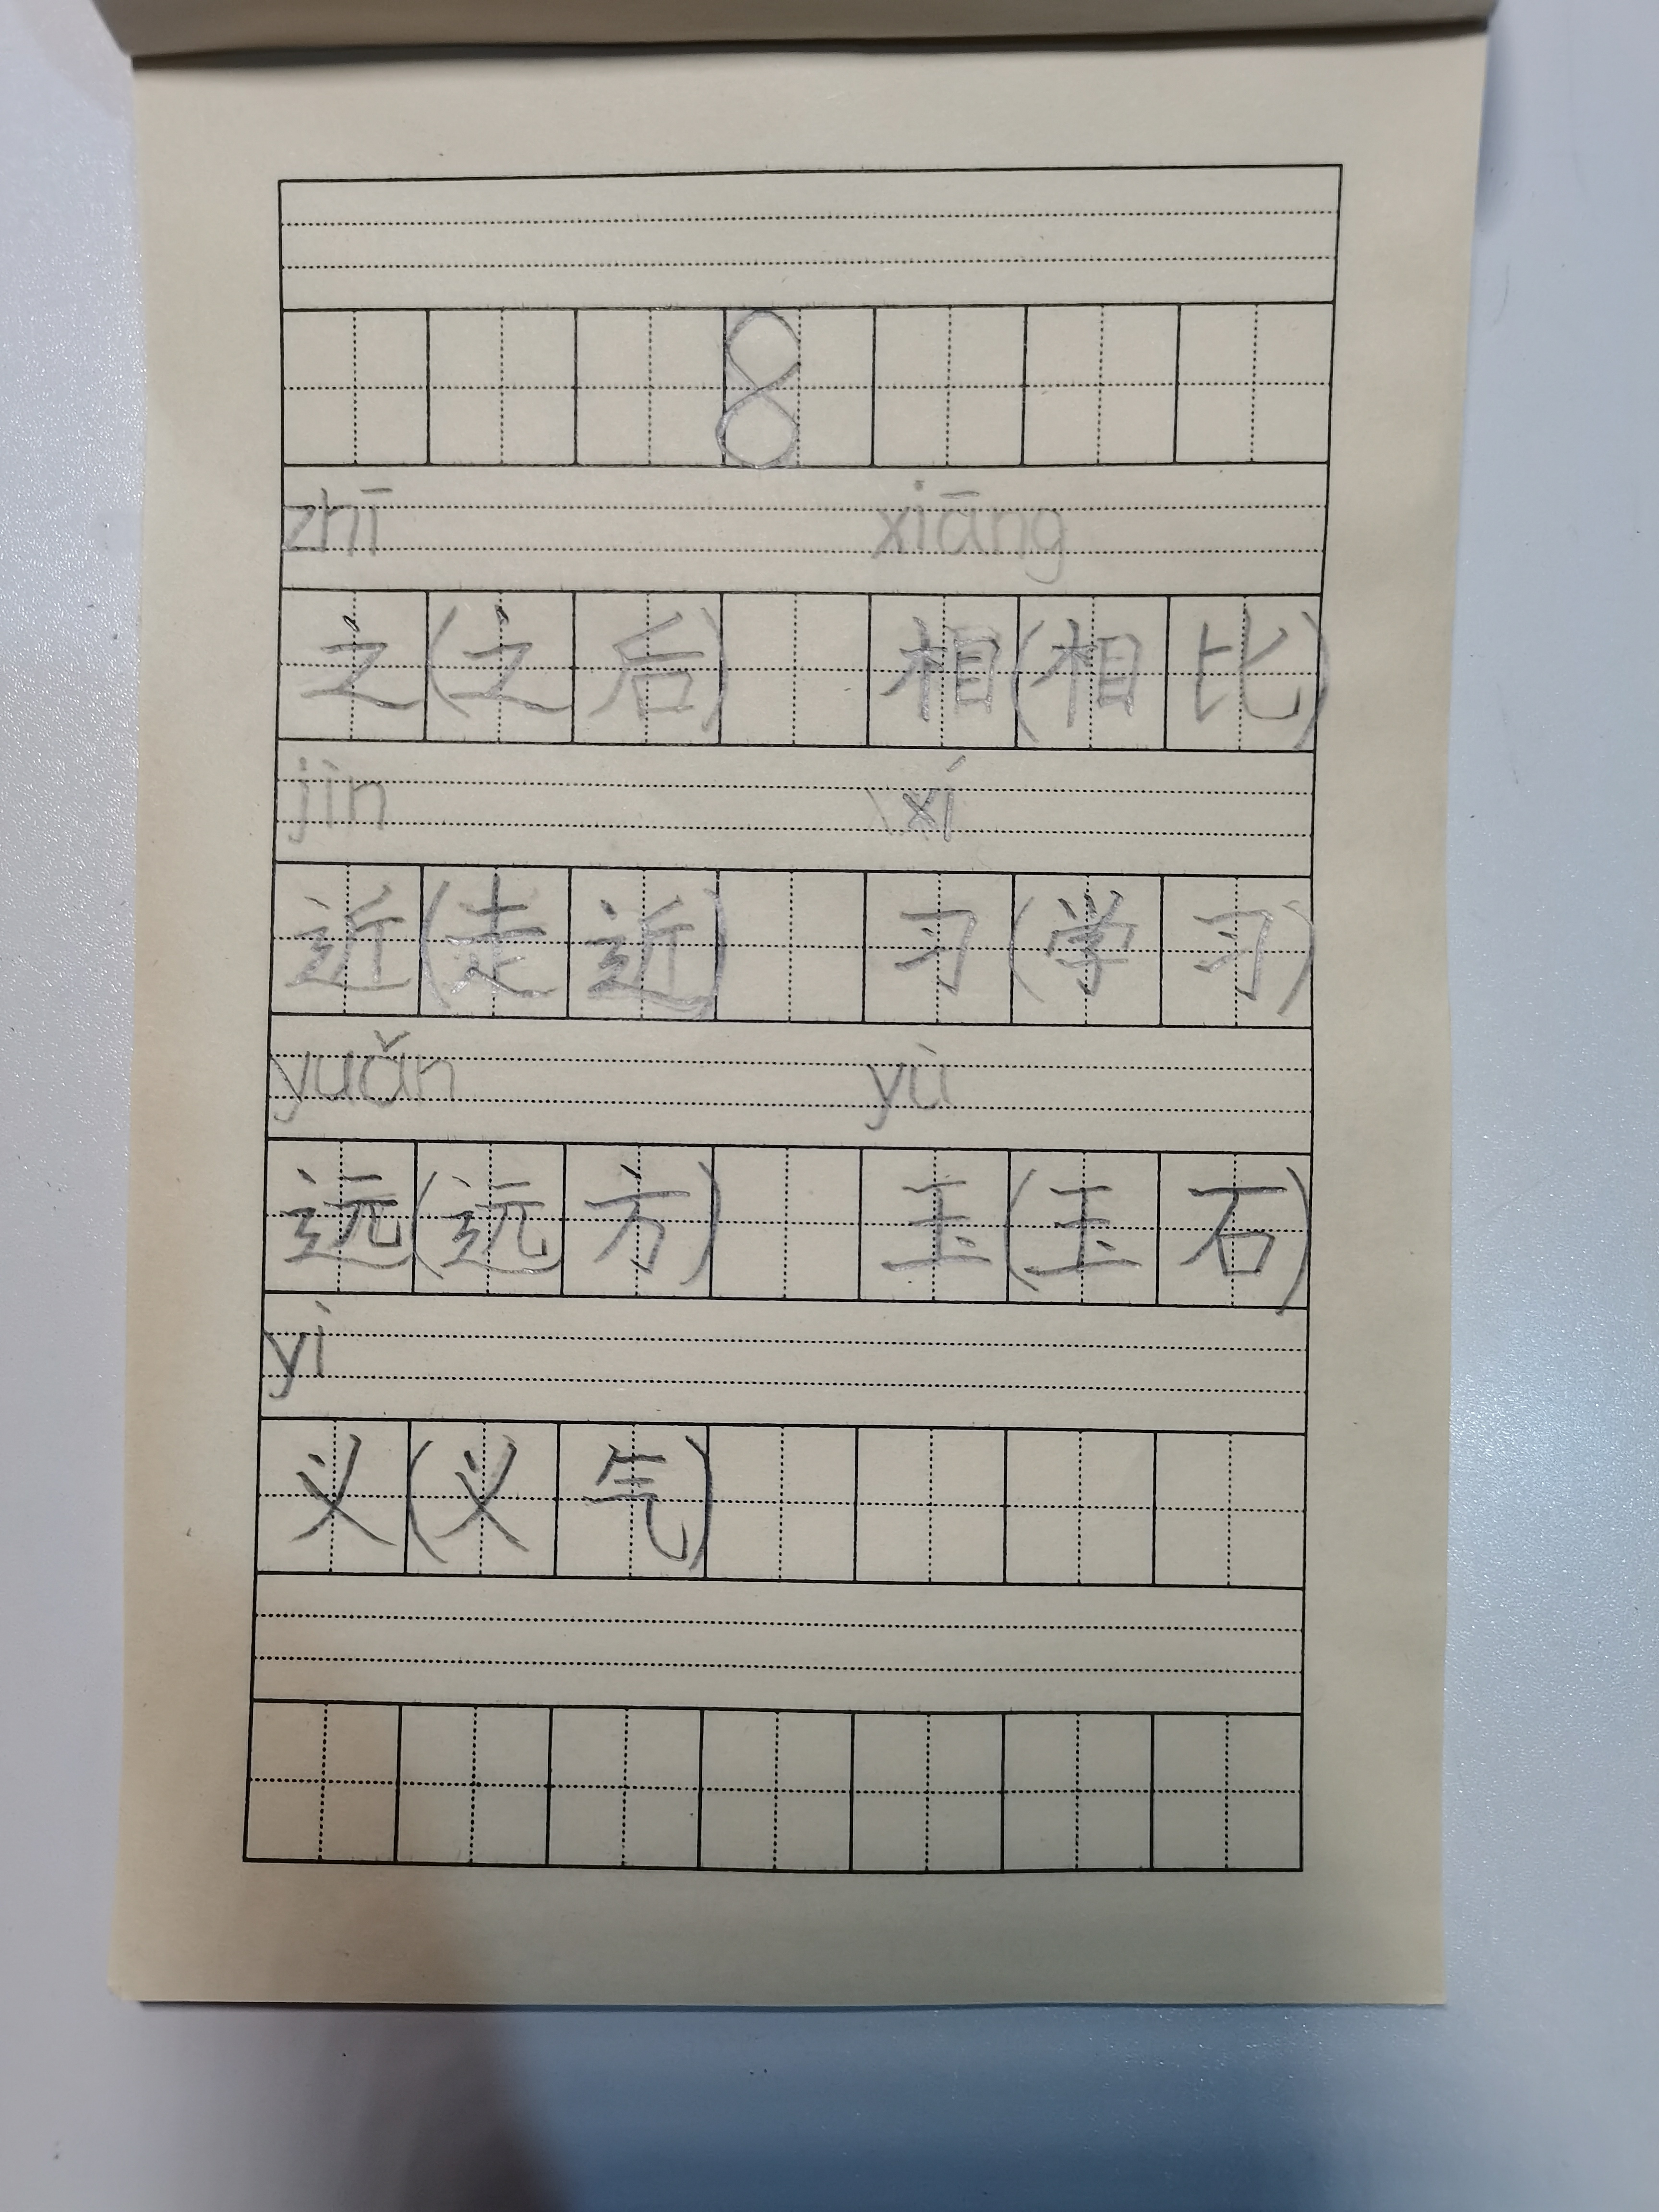 8
zhī xiāng
之(之后) 相(相比)
jìn xí
近(走近) 习(学习)
yuǎn yù
远(远方) 玉(玉石)
yì
义(义气)